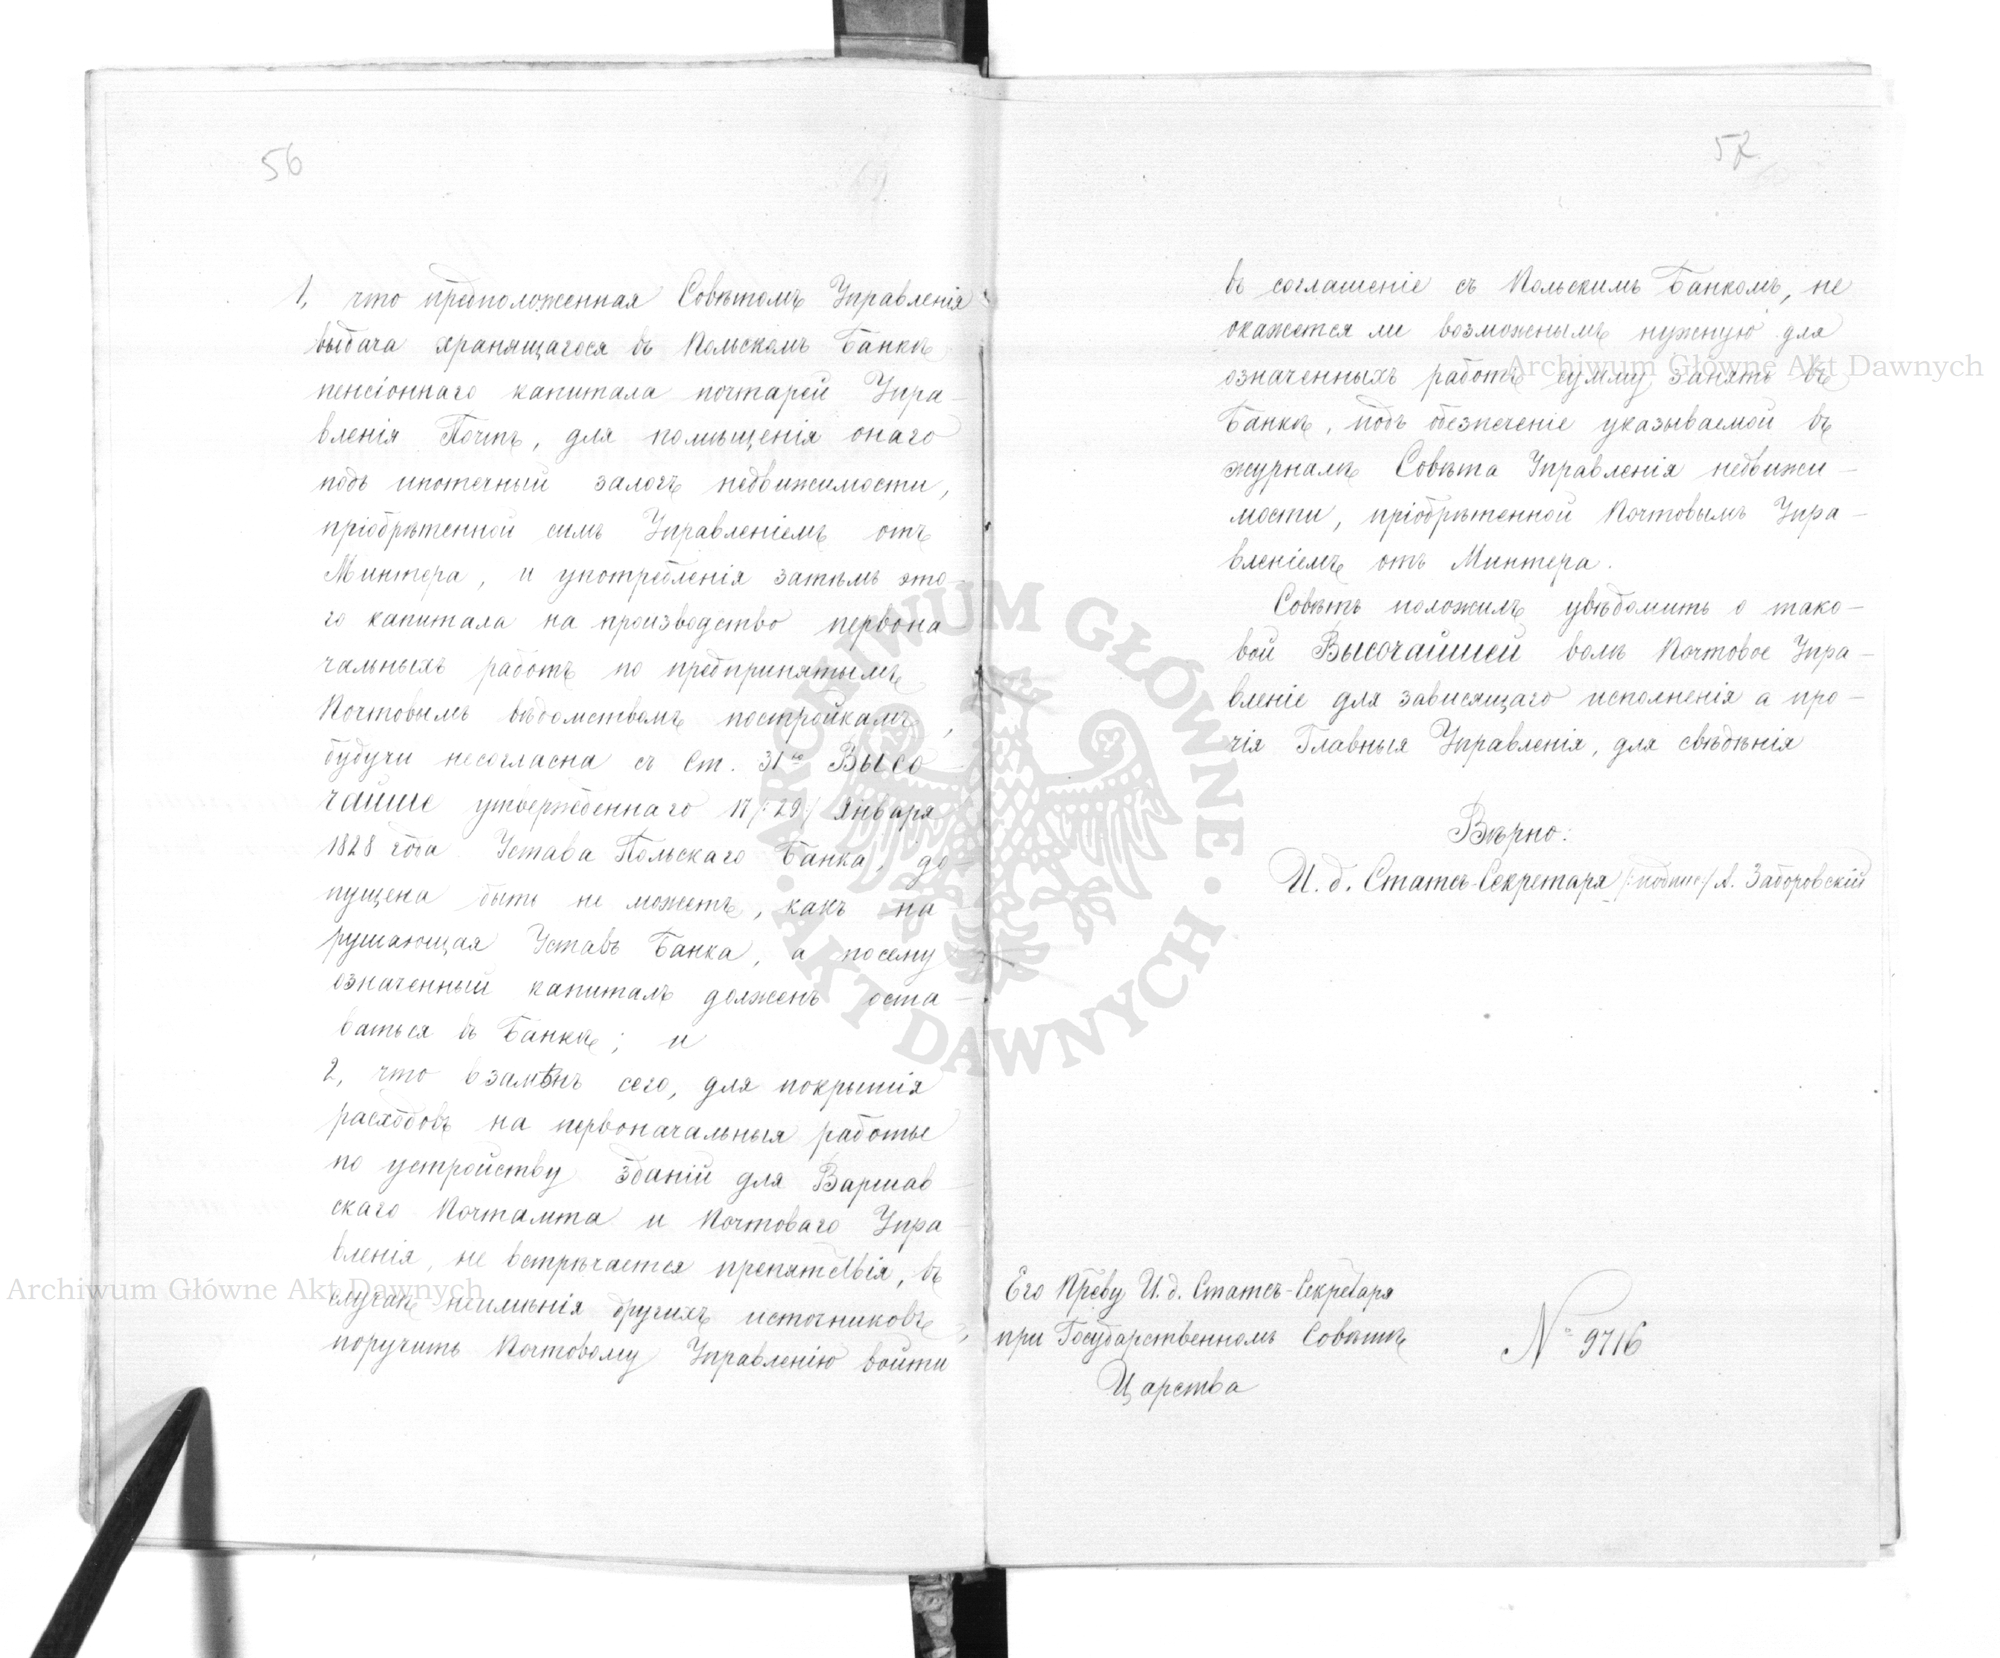 56
1, что предположенная Совѣтомъ Управленія
выдача хранящагося въ Польскомъ Банкѣ
пенсіоннаго капитала почтарей Упра-
вленія Почтъ, для помѣщенія онаго
подъ ипотечный залогъ недвижимости,
пріобрѣтенной симъ Управленіемъ отъ
Минтера, и употребленія затѣмъ это-
го капитала на производство первона
чальныхъ работъ по предпринятымъ
Почтовымъ вѣдомствомъ постройкамъ,
будучи несогласна съ Ст. 31ю Высо-
чайше утвержденнаго 17/29/ Января
1828 года Устава Польскаго Банка, до-
пущена быть не можетъ, какъ на
рушающая Уставъ Банка, а посему
означенный капиталъ долженъ оста-
ваться въ Банкѣ; и
2, что взамѣнъ сего, для покрытія
расходовъ на первоначальныя работы
по устройству зданій для Варшав-
скаго Почтамта и Почтоваго Упра-
вленія, не встрѣчается препятствія, въ
случаѣ неимѣнія другихъ источниковъ,
поручить Почтовому Управленію войти
57
въ соглашеніе съ Польскимъ Банкомъ, не
окажется ли возможнымъ нужную для
означенныхъ работъ сумму занять въ
Банкѣ, подъ обезпеченіе указываемой въ
журналѣ Совѣта Управленія недвижи-
мости, пріобрѣтенной Почтовымъ Упра-
вленіемъ отъ Минтера.
Совѣтъ положилъ увѣдомить о тако-
вой Высочайшей волѣ Почтовое Упра-
вленіе для зависящаго исполненія а про-
чія Главныя Управленія, для свѣдѣнія
Вѣрно:
И. д. Статсъ-Секретаря /:подпис:/ А. Заборовскій
Его Прєву И. д. Статсъ-Секретаря
при Государственномъ Совѣтѣ
Царства
№ 9716
Archiwum Główne Akt Dawnych
Archiwum Główne Akt Dawnych
ARCHIWUM GŁÓWNE · AKT DAWNYCH ·